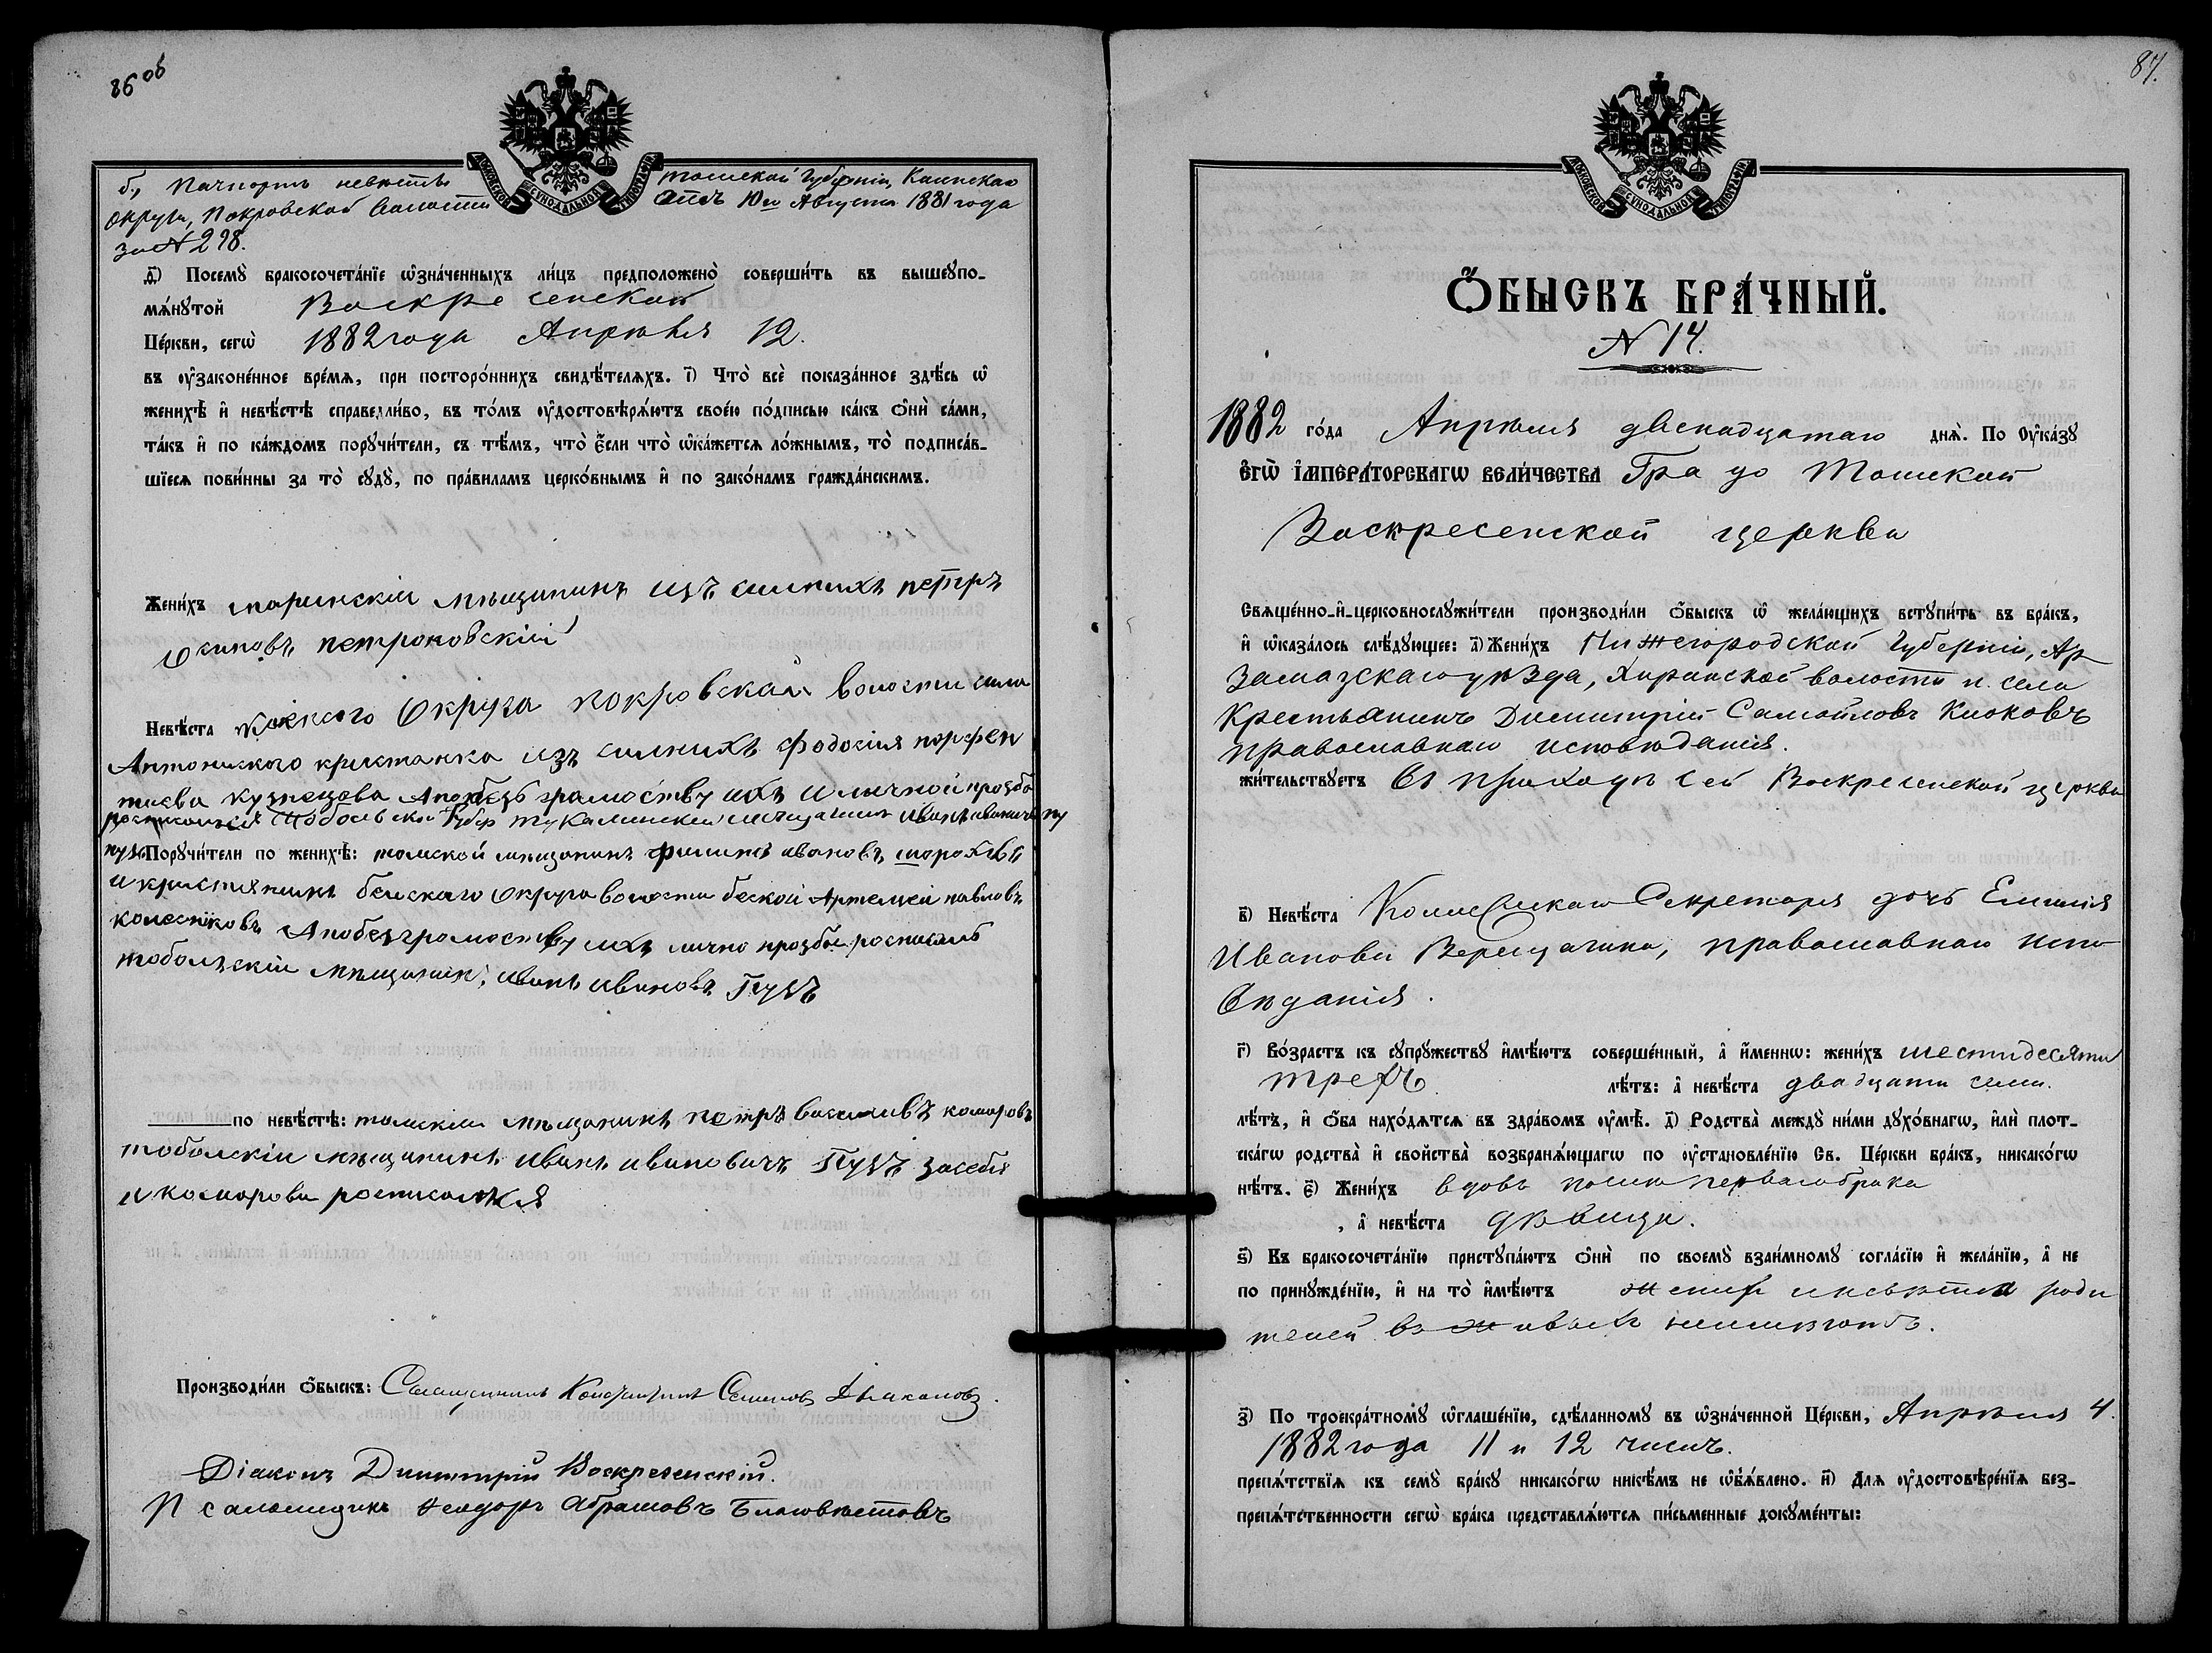 86 об
МОСКОВСКОЙ СѴНОДАЛЬНОЙ ТИПОГРАФІИ
б., Пачпортъ невѣсты Томской Губерніи, Каинскаго
округа, Покровской Волости отъ 10го Августа 1881 года
за N 298.
д҃) Посемꙋ̀ бракосочета́нїе ѡ҆зна́ченныхъ ли́цъ предположено̀ соверши́ть въ вышеꙋпо-
мѧ́нꙋтой Воскресенской
Це́ркви, сегѡ̀ 1882 года Апрѣля 12.
въ ᲂу҆зако́ненное вре́мѧ, при посторо́ннихъ свидѣ́телѧхъ. і҃) Что̀ всѐ пока́занное здѣ́сь ѡ҆
женихѣ̀ и҆ невѣ́стѣ справедли́во, въ то́мъ ᲂу҆достовѣрѧ́ютъ свое́ю по́дписью ка́къ ѻ҆нѝ са́ми,
та́къ и҆ по ка́ждомъ порꙋчи́тели, съ тѣ́мъ, что̀ є҆́сли что̀ ѡ҆ка́жетсѧ ло́жнымъ, то̀ подписа́в-
шїесѧ пови́нны за то̀ сꙋдꙋ̀, по пра́виламъ церко́внымъ и҆ по зако́намъ гражда́нскимъ.
Жени́хъ маринскій мѣщанинъ изъ сылныхъ петръ
осиповъ петроковскій
Невѣ́ста Округа покровскай волости села
Антонинского кристянка изъ сылныхъ федосия
кузнецова Апобезъ грамоству ихъ илычной прозбѣ
росписался Тобольской Губер тукалинской мещанинъ иванъ ивановичъ
Порꙋчи́тели по женихѣ̀: томской мѣщанинъ филипъ ивановъ
и кристянинъ бейскаго округа волости беской Артемей павловъ
колесниковъ Апобезграмоству ихъ лично прозбѣ росписалъ
тобольскій мѣщанинъ иванъ ивановъ Пузъ
по невѣ́стѣ: томскій мѣщанинъ петръ василивъ комаровъ
тоболскій мѣщанинъ иванъ ивановичъ Пузъ засебя
и комарова росписался
Производи́ли ѻ҆́быскъ: Священникъ Константинъ Семеновъ Дьяконовъ.
Діаконъ Димитрій Воскресенскій.
Псаломщикъ Феодоръ Абрамовъ Благовѣстовъ
87.
МОСКОВСКОЙ СѴНОДАЛЬНОЙ ТИПОГРАФІИ
Ѻ҆́БЫСКЪ БРА́ЧНЫЙ.
N 14.
1882 го́да Апрѣля двенадцатаго днѧ̀. По Оу҆ка́зꙋ
Є҆ГѠ̀ І҆МПЕРА́ТОРСКАГѠ ВЕЛИ́ЧЕСТВА Градо Томской
Воскресенской церкви
Свѧще́нно-и҆-церковнослꙋжи́тели производи́ли ѻ҆́быскъ ѡ҆ жела́ющихъ встꙋпи́ть въ бра́къ,
и҆ ѡ҆каза́лось слѣ́дꙋющее: а҃) Жени́хъ Нижегородской Губерніи, Ар
замазскаго уѣзда, Хиринской волости и села
Крестьянинъ Димитрій Самойловъ Клоковъ
православнаго исповѣданія.
жи́тельствꙋетъ въ приходѣ сей Воскресенской церкви
в҃) Невѣ́ста Коллежскаго Секретаря дочь Емилія
Иванова Верещагина, православнаго испо-
вѣданія.
г҃) Во́зрастъ къ сꙋпрꙋ́жествꙋ и҆мѣ́ютъ соверше́нный, а҆ и҆́меннѡ: жени́хъ шестидесяти
трехъ лѣ́тъ: а҆ невѣ́ста двадцати семи.
лѣ́тъ, и҆ ѻ҆́ба нахо́дѧтсѧ въ здра́вомъ ᲂу҆мѣ̀. д҃) Родства̀ междꙋ̀ ни́ми дꙋхо́внагѡ, и҆лѝ плот-
ска́гѡ родства̀ и҆ свойства̀ возбранѧ́ющагѡ по ᲂу҆становле́нїю Св. Це́ркви бра́къ, никако́гѡ
нѣ́тъ. є҃) Жени́хъ вдовъ послѣ перваго брака
, а҆ невѣ́ста дѣвица.
ѕ҃) Къ бракосочета́нїю пристꙋпа́ютъ ѻ҆нѝ по своемꙋ̀ взаи́мномꙋ согла́сїю и҆ жела́нїю, а҆ не
по принꙋжде́нїю, и҆ на то̀ и҆мѣ́ютъ женихъ и невѣста роди
телей въ живыхъ неимѣютъ.
з҃) По троекра́тномꙋ ѡ҆глаше́нїю, сдѣ́ланномꙋ въ ѡ҆зна́ченной Це́ркви, Апрѣля 4.
1882 года 11 и 12 чиселъ.
препѧ́тствїѧ къ семꙋ̀ бра́кꙋ никако́гѡ никѣ́мъ не ѡ҆б̾ѧ́влено. и҃) Длѧ ᲂу҆достовѣре́нїѧ без-
препѧ́тственности сегѡ̀ бра́ка представлѧ́ютсѧ пи́сьменные докꙋме́нты: